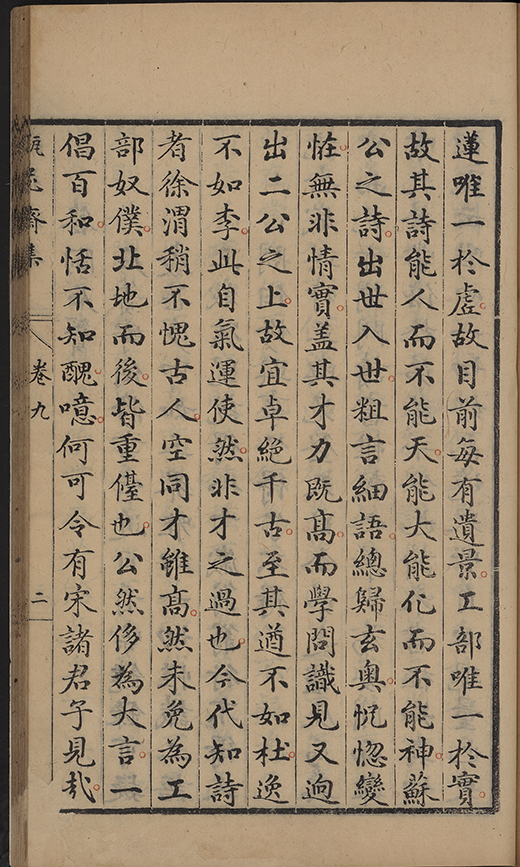 蓮唯一於虛故目前每有遺景工部唯一於實
故其詩能人而不能天能大能化而不能神蘇
公之詩出世入世粗言細語總歸玄奧怳惚變
恠無非情實盖其才力既高而學問識見又迥
出二公之上故宜卓絕千古至其遒不如杜逸
不如李此自氣運使然非才之過也今代知詩
者徐渭稍不愧古人空同才雖高然未免為工
部奴僕北地而後皆重儓也公然侈為大言一
倡百和恬不知醜噫何可令有宋諸君子見哉
瓶花齋集
卷九
二